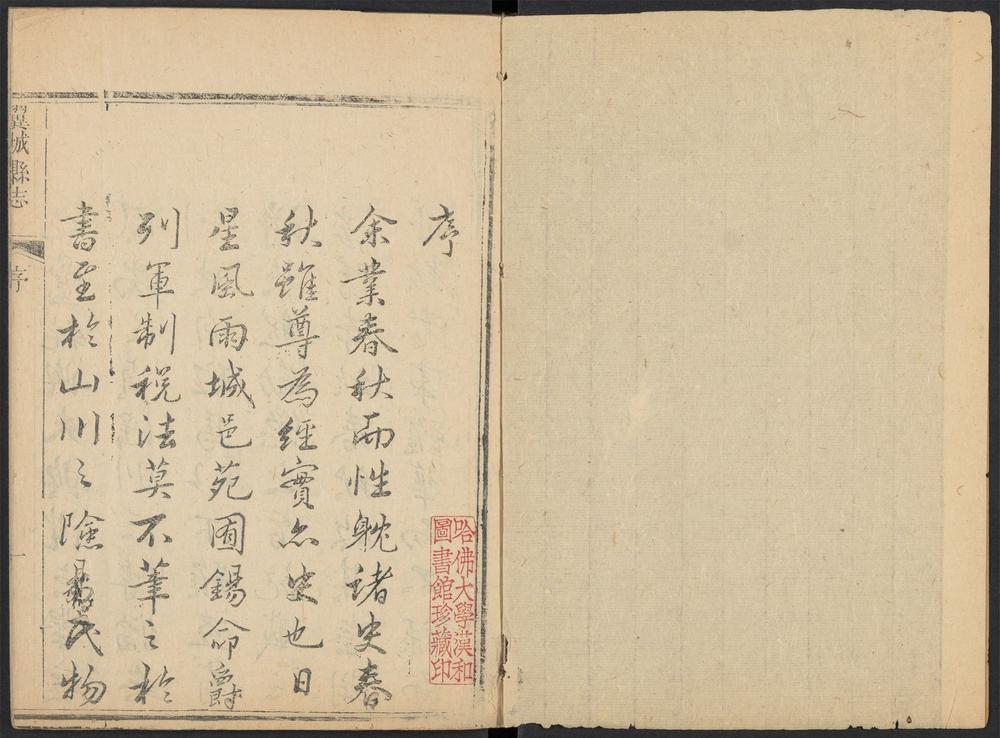 序
余業春秋而性耽諸史春
秋雖尊為經實亦史也日
星風雨城邑苑囿錫命爵
列軍制税法莫不筆之於
書至於山川之險易民物
哈佛大學漢和
圖書館珍藏印
翼城縣志
序
一